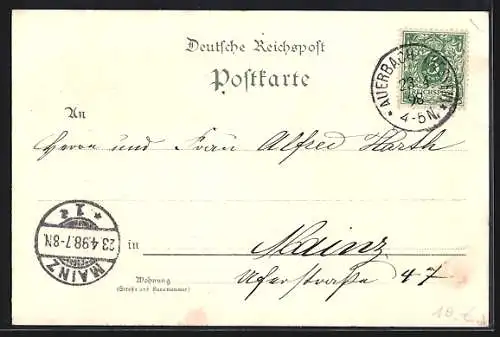 Deutsche Reichspost
Postkarte
AUERBACH
23 4
98
4-5N.
An
Herrn und Frau Alfred Harth
MAINZ
23.4.98.7-8N.
* 1a *
in Mainz
Wohnung
(Straße und Hausnummer)
Uferstraße 47